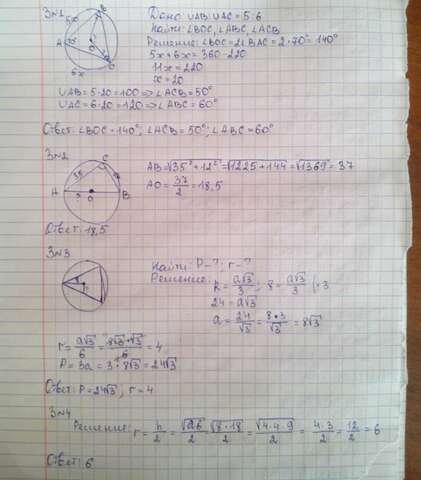 3№1
Дано ∪AB:∪AC = 5:6
Найти: ∠BOC, ∠ABC, ∠ACB
Решение: ∠BOC = 2∠BAC = 2·70° = 140°
5x+6x = 360-220
11x = 220
x = 20
∪AB = 5·20 = 100 => ∠ACB = 50°
∪AC = 6·20 = 120 => ∠ABC = 60°
Ответ: ∠BOC = 140°; ∠ACB = 50°; ∠ABC = 60°
3№2
AB = √35²+12² = √1225+144 = √1369 = 37
AO = 37/2 = 18,5
A
C
B
O
35
Ответ: 18,5
3№3
Найти: P-?; r-?
Решение:
R = a√3/3; 8 = a√3/3 |·3
24 = a√3
a = 24/√3 = 8·3/√3 = 8√3
r = a√3/6 = 8√3·√3/6 = 4
P = 3a = 3·8√3 = 24√3
Ответ: P = 24√3; r = 4
3№4
Решение: r = h/2 = √ab/2 = √8·18/2 = √4·4·9/2 = 4·3/2 = 12/2 = 6
Ответ: 6